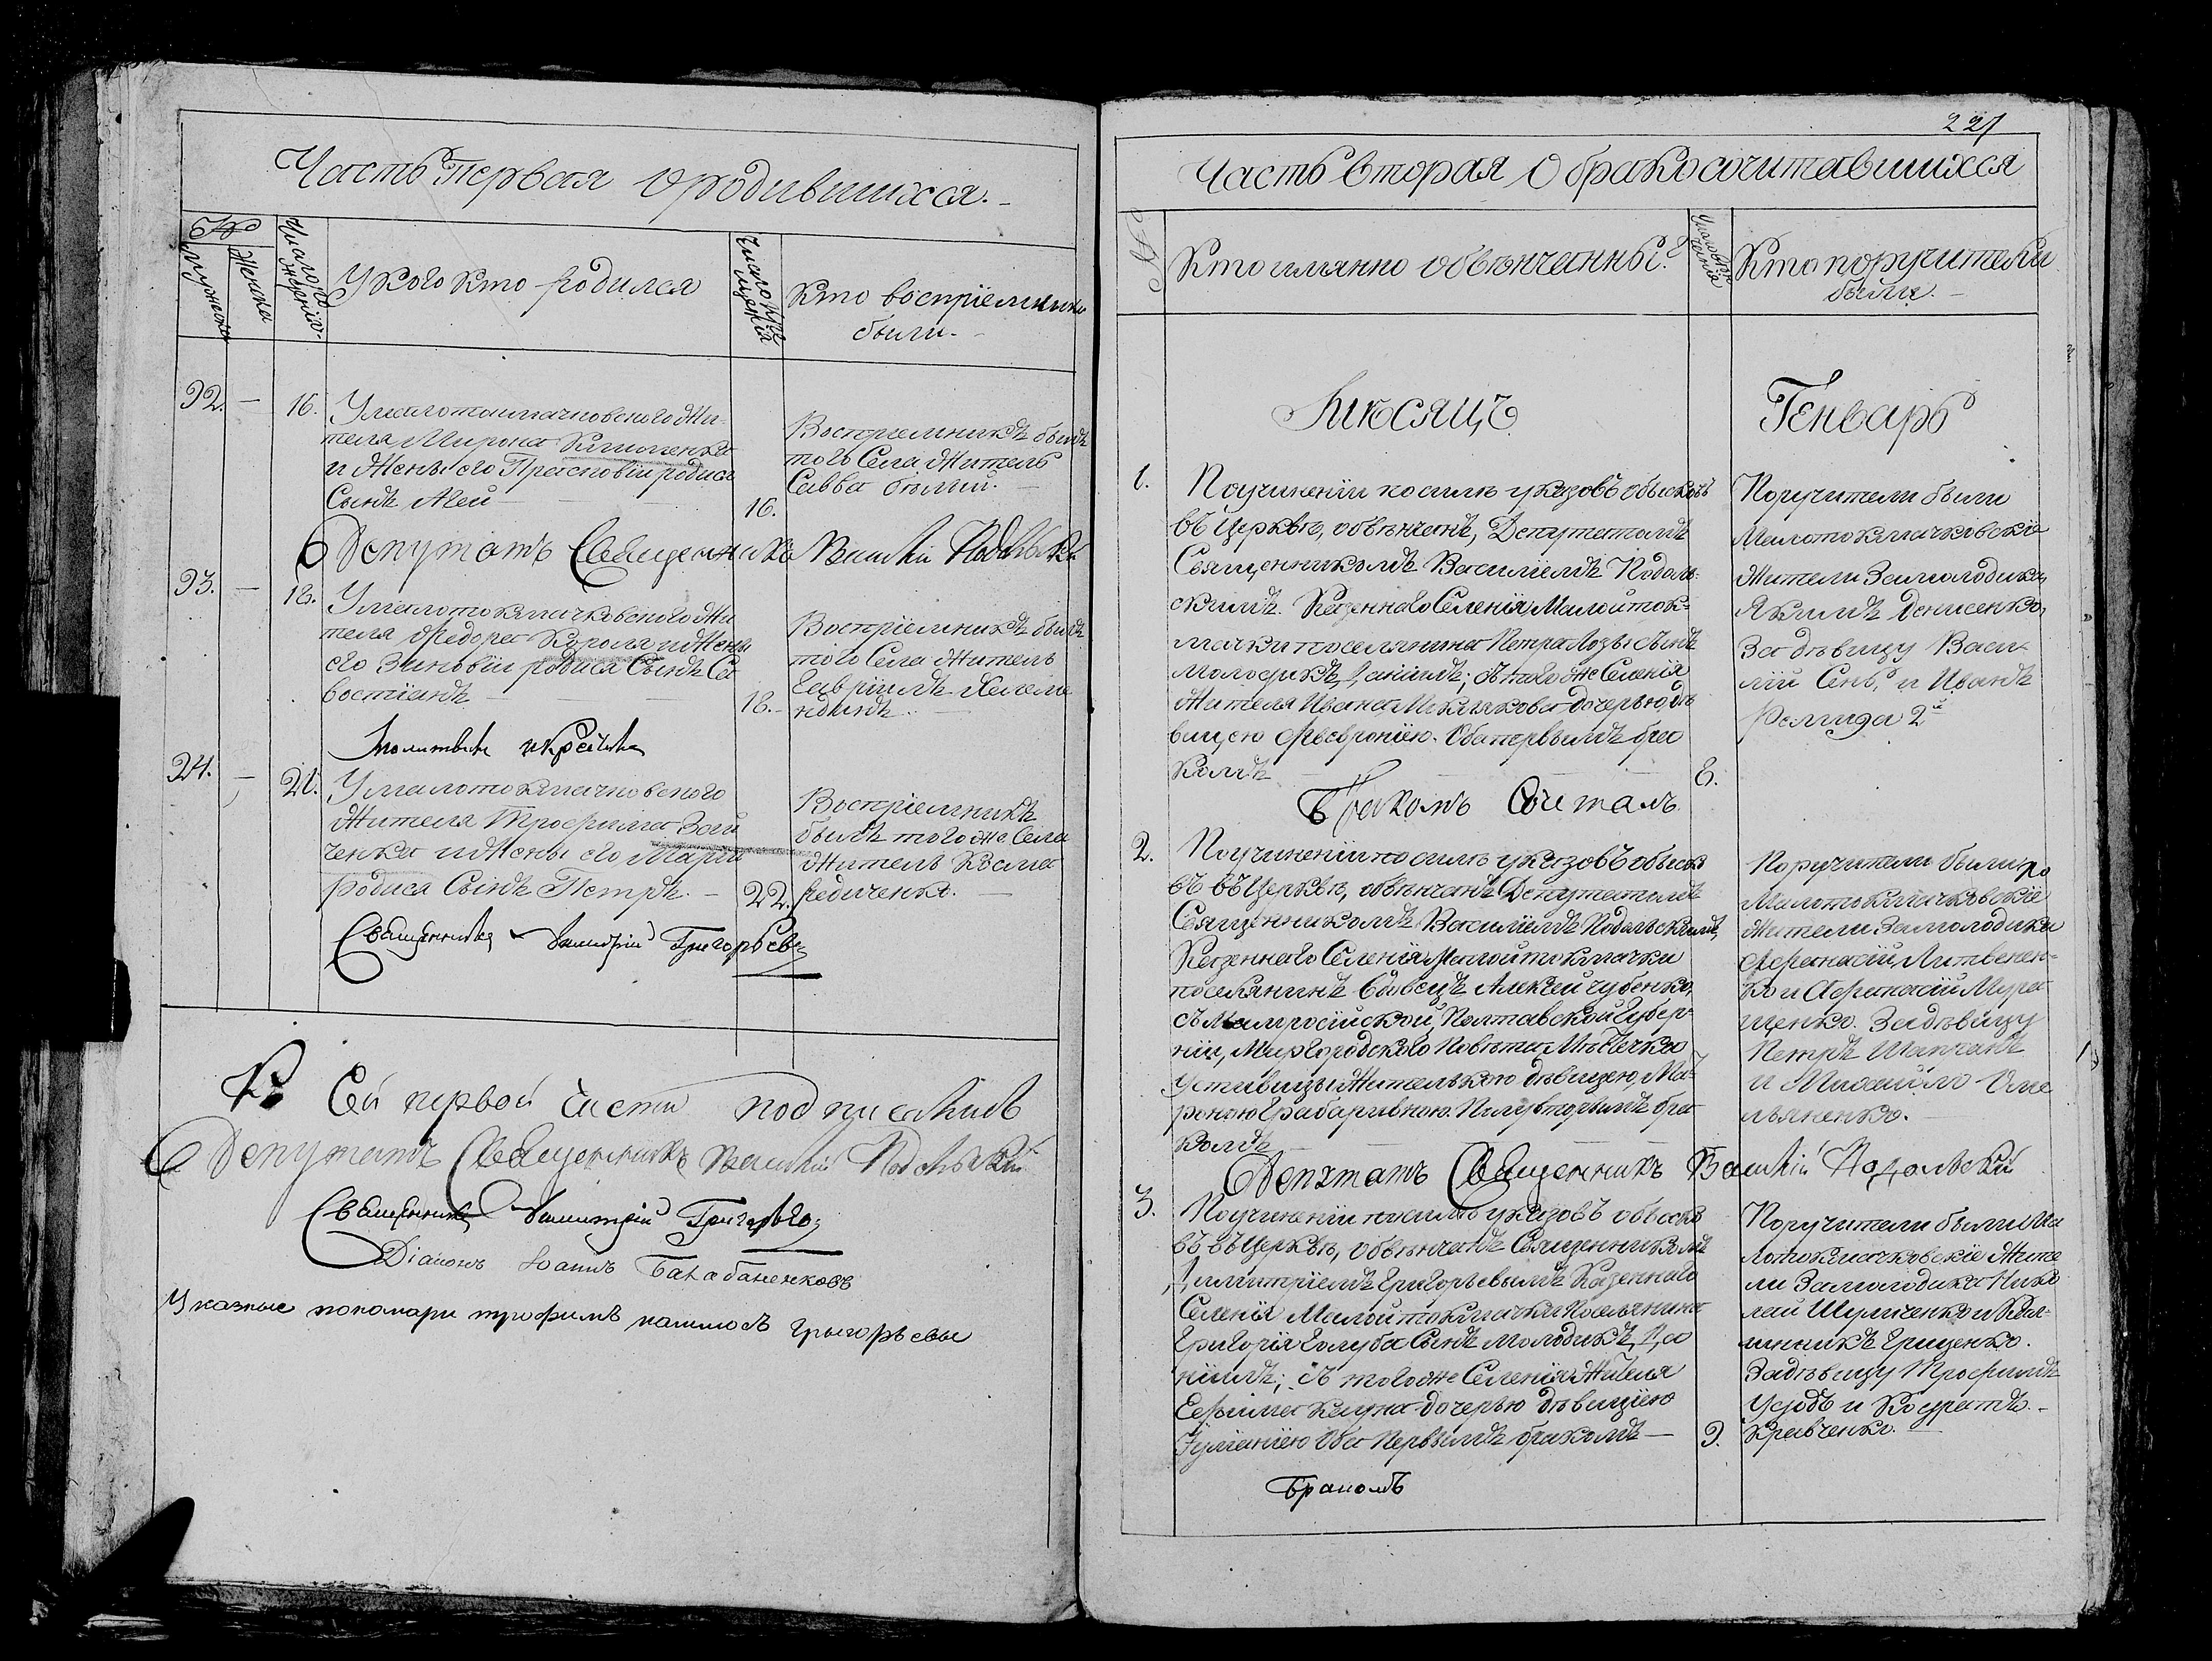 Часть первая о родившихся.
№
мужеска
женска
Число рождения
У кого кто родился
Число крещенія
Кто воспріемники
были.
92. — 16. У малотокмачковского жи-
теля Мирона Клименка
и жены его Прасковіи родися
Сынъ Агей
16.
Воспріемникъ былъ
того Села Житель
Савва белий.
Депутатъ Священникъ Василій Подольскій
93. — 18. У малотокмачковского жи
теля Федора Короля и жены
его Зиновіи родися Сынъ Се
востіанъ
18.
Воспріемникъ былъ
того Села Житель
Гавріилъ
Молитвилъ и крестилъ
94. — 21. У малотокмачковского
Жителя Трофима Зай
ченка и жены его Маріи
родися Сынъ Петръ.
22.
Воспріемникъ
былъ того же Села
Житель Косма
Федиченко.
Священникъ Димитрій Григорьевъ
К Сей первой части подписались
Депутатъ Священникъ Василій Подольскій
Священникъ Димитрій Григорьевъ
Діаконъ Іоаннъ Балабаненковъ
Указные пономари трофимъ Григорьевы
221
Часть вторая О бракосочитавшихся
№
Кто имянно обвенчанны.
Число венчания
Кто поручители
были.
Месяцъ
Генварь
1. По учиненіи по силе указовъ обысковъ
въ Церкве, обвенчанъ, Депутатомъ
Священникомъ Василіемъ Подоль-
скимъ. Казенного Селенія Малой ток-
мачки поселянина Петра Лозы сынъ
молодикъ, Даніилъ; съ того же Селенія
Жителя Ивана дочерью, де
вицею Февроніею. Оба первымъ бра
комъ
8.
Поручители были
Малотокмачковскіе
Жители За молодика
Якимъ Денисенко,
За девицу Васи-
лій Сень, и Иванъ
2й
Бракомъ Сочиталъ
2. По учиненіи по силе указовъ обыско
въ въ Церкве, обвенчанъ Депутатомъ
Священникомъ Василіемъ Подольскимъ,
Казенного Селенія Малой токмачки
поселянинъ вдовецъ Алексей чубенко,
съ Малоросійской, Полтавской Губер-
ніи, Миргородского Повета Местечка
Устивицы Жителькою девицею, Ма-
роною Грабаривною. Полувторымъ бра
комъ
Поручители были
Малотокмачковскіе
Жители За молодика
Афанасій Литвинен-
ко и Афанасій Мура
щенко. За девицу
Петръ
и Михайло Оме
льяненко.
Депутатъ Священникъ Василій Подольскій
3. По учиненіи по силе указовъ обыско
въ въ Церкве, обвенчанъ Священникомъ
Димитріемъ Григорьевымъ Казенного
Селенія Малой токмачки поселянина
Григорія Голуба Сынъ молодикъ, Да
ніилъ; съ того же Селенія Жителя
Ефима дочерью девицею
Іуліаніею Оба первымъ бракомъ —
9.
Поручители были ма
лотокмачковскіе Жите
ли За молодика Нико
лай Шулженко и Кал-
линикъ Гриценко.
За девицу Трофимъ
и Кондратъ.
Кравченко.
Бракомъ